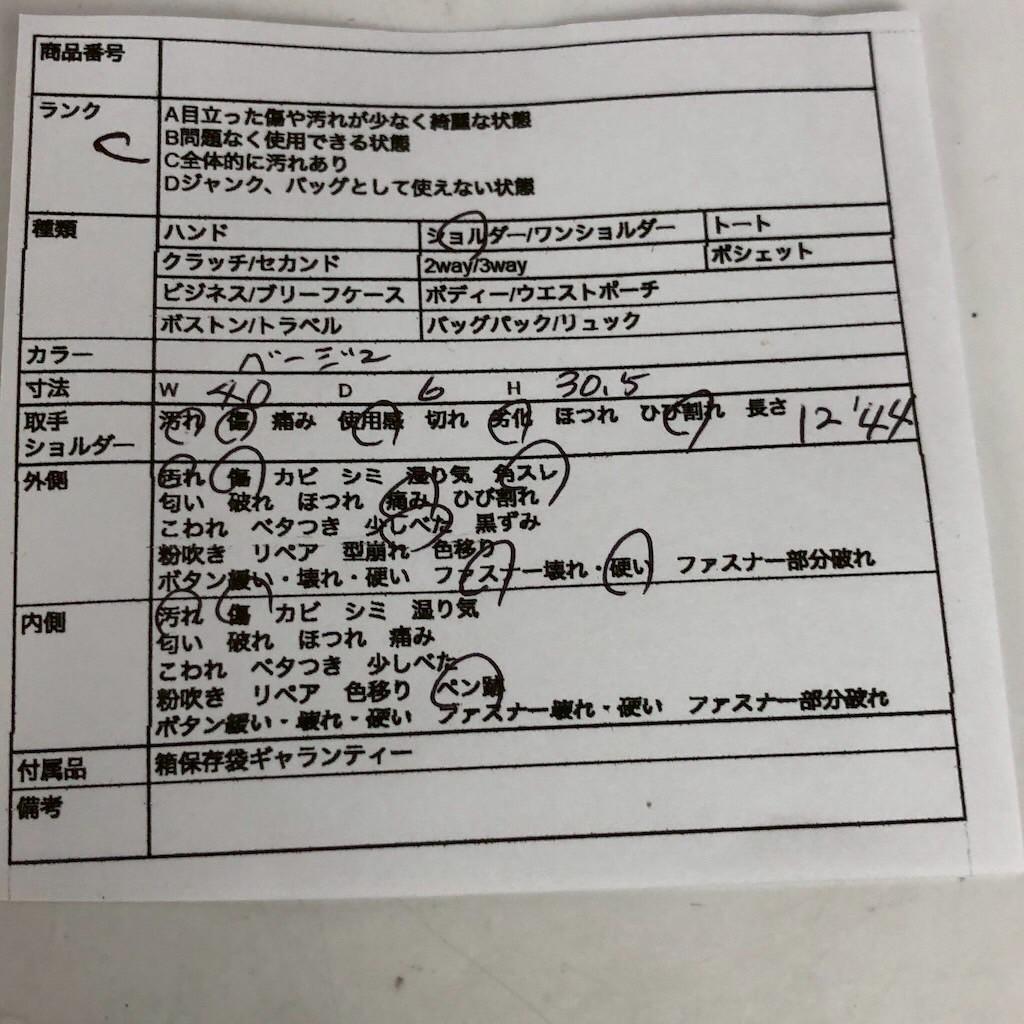 商品番号
ランク C
A目立った傷や汚れが少なく綺麗な状態
B問題なく使用できる状態
C全体的に汚れあり
Dジャンク、バッグとして使えない状態
種類 ハンド ショルダー/ワンショルダー トート
クラッチ/セカンド 2way/3way ポシェット
ビジネス/ブリーフケース ボディー/ウエストポーチ
ボストン/トラベル バッグパック/リュック
カラー ベージュ
寸法 W 40 D 6 H 30.5
取手 汚れ 傷 痛み 使用感 切れ 劣化 ほつれ ひび割れ 長さ
ショルダー
外側 汚れ 傷 カビ シミ 湿り気 角スレ
匂い 破れ ほつれ 痛み ひび割れ
こわれ ベタつき 少しべた 黒ずみ
粉吹き リペア 型崩れ 色移り
ボタン緩い・壊れ・硬い ファスナー壊れ・硬い ファスナー部分破れ
内側 汚れ 傷 カビ シミ 湿り気
匂い 破れ ほつれ 痛み
こわれ ベタつき 少しべた
粉吹き リペア 色移り ペン跡
ボタン緩い・壊れ・硬い ファスナー壊れ・硬い ファスナー部分破れ
付属品 箱保存袋ギャランティー
備考